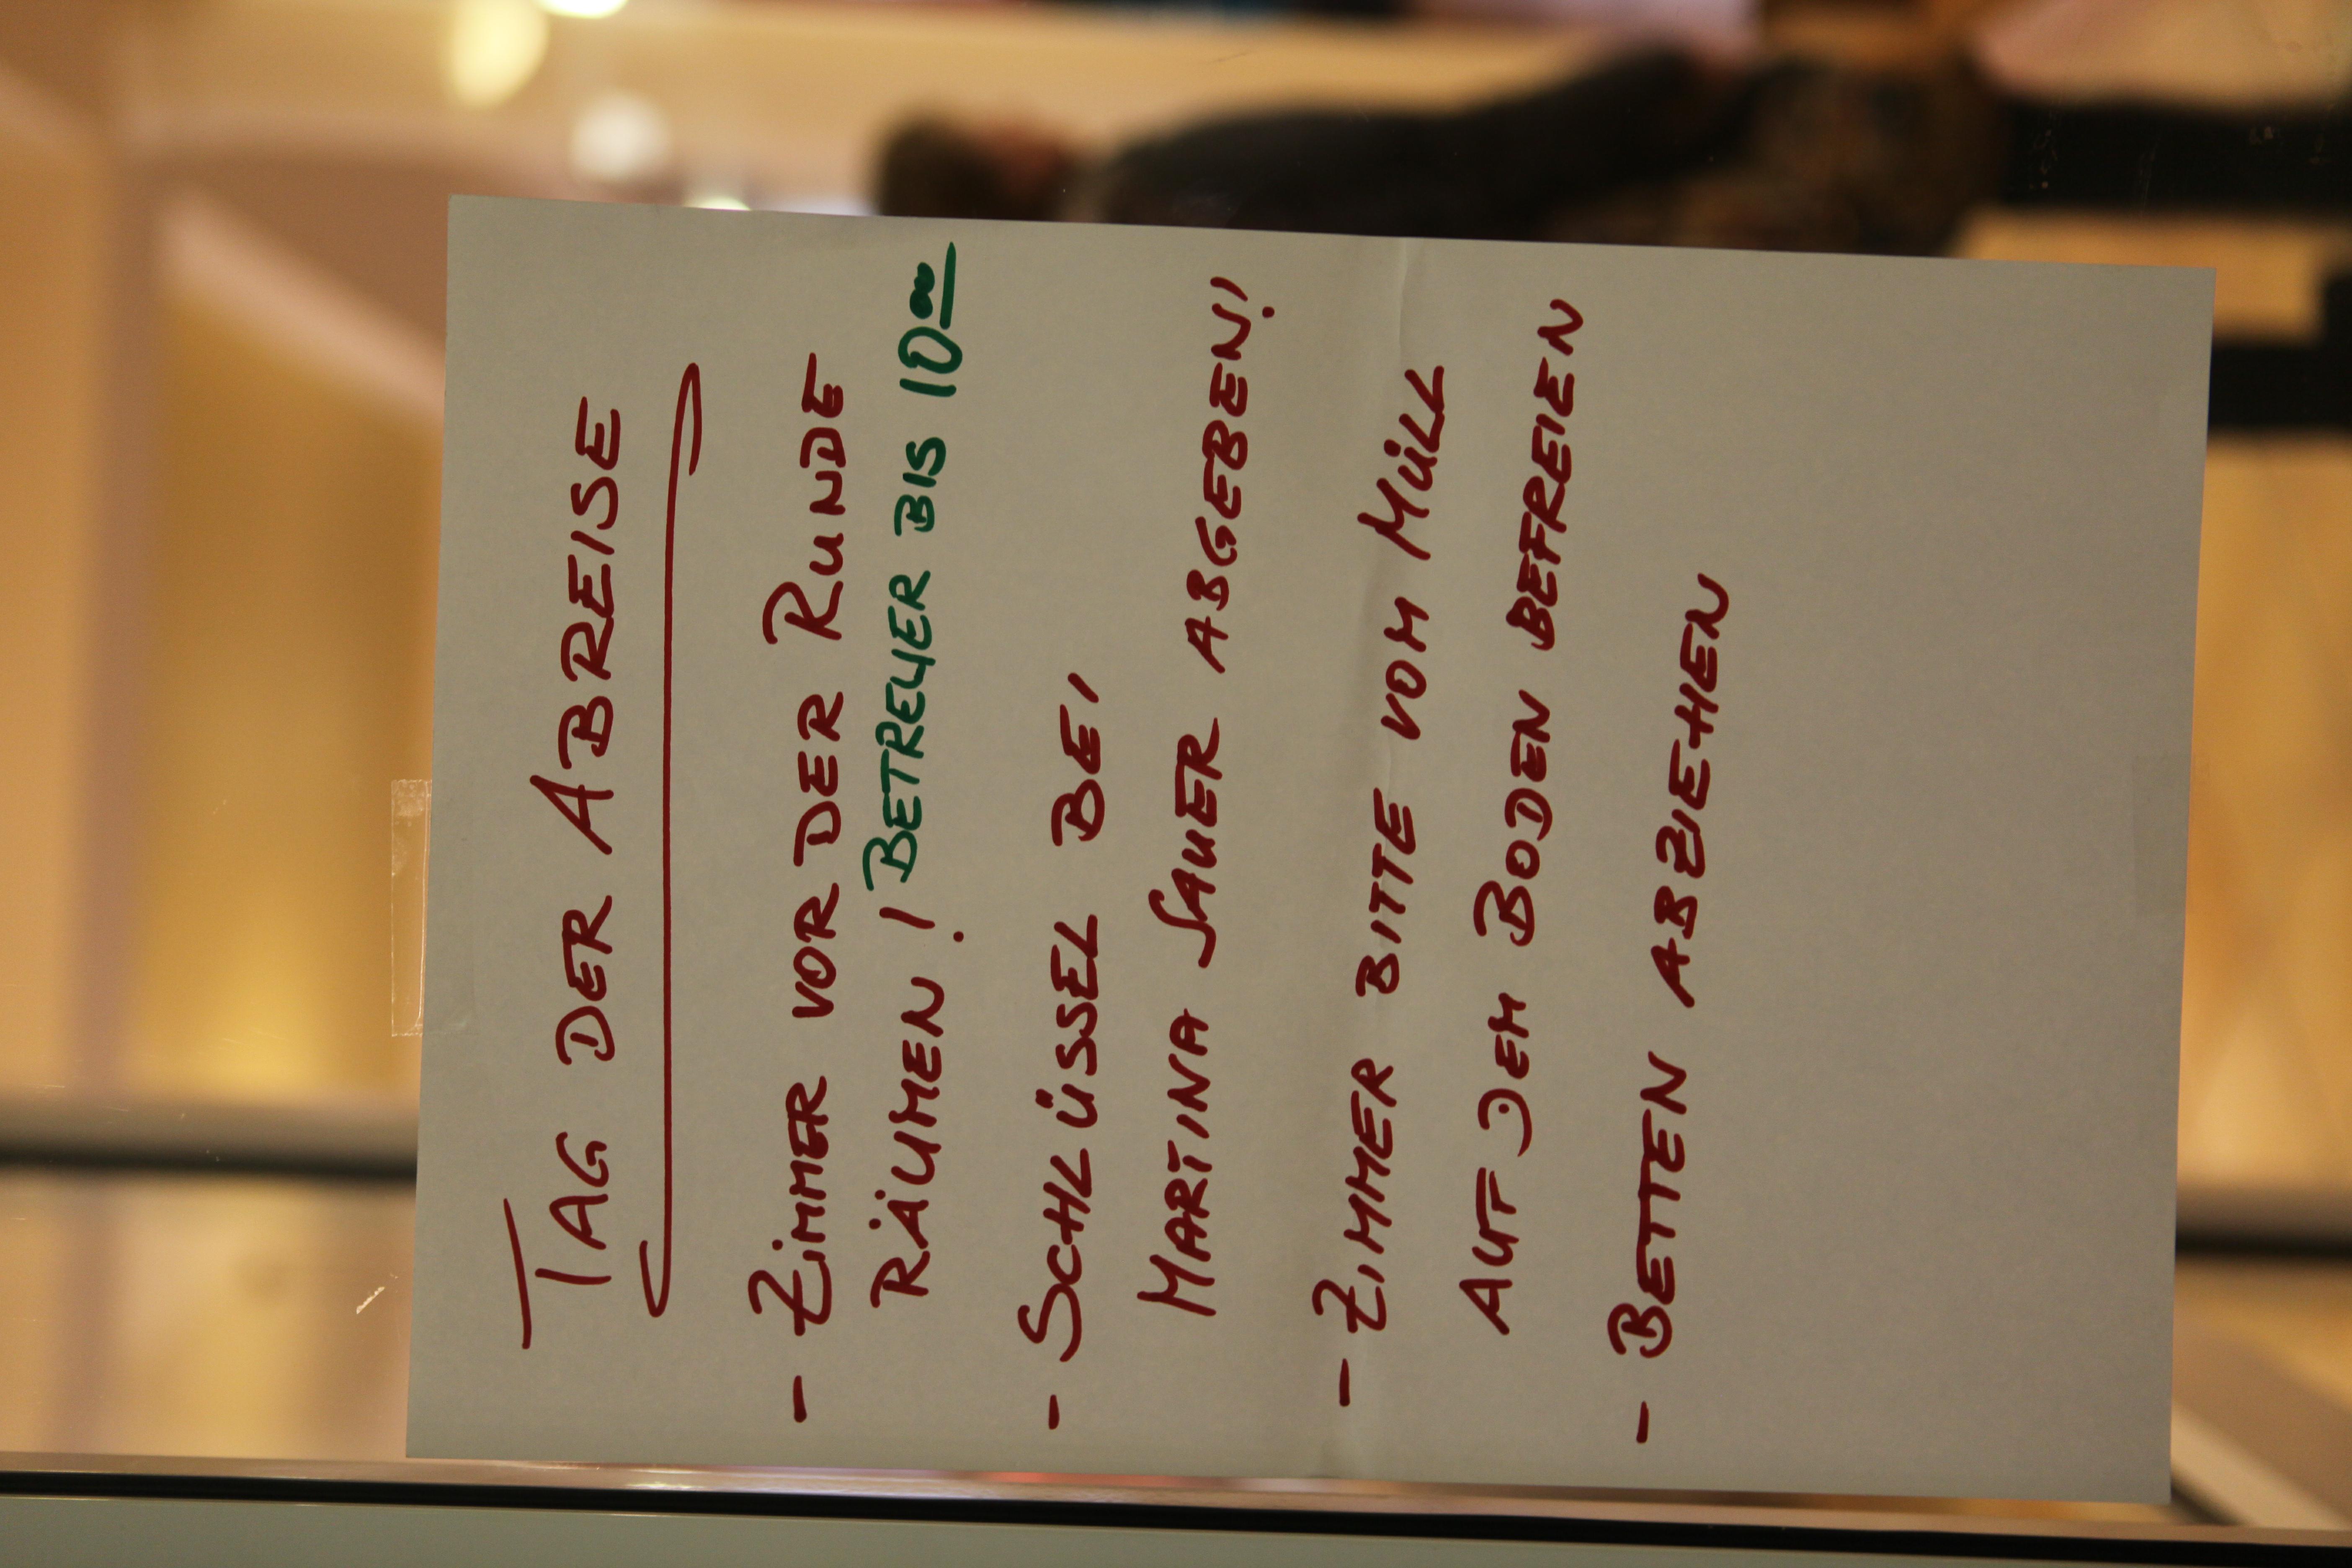 TAG DER ABREISE
- ZIMMER VOR DER RUNDE
RÄUMEN! BETREUER BIS 10⁰⁰
- SCHLÜSSEL BEI
MARTINA SAUER ABGEBEN!
- ZIMMER BITTE VOM MÜLL
AUF DEM BODEN BEFREIEN
- BETTEN ABZIEHEN